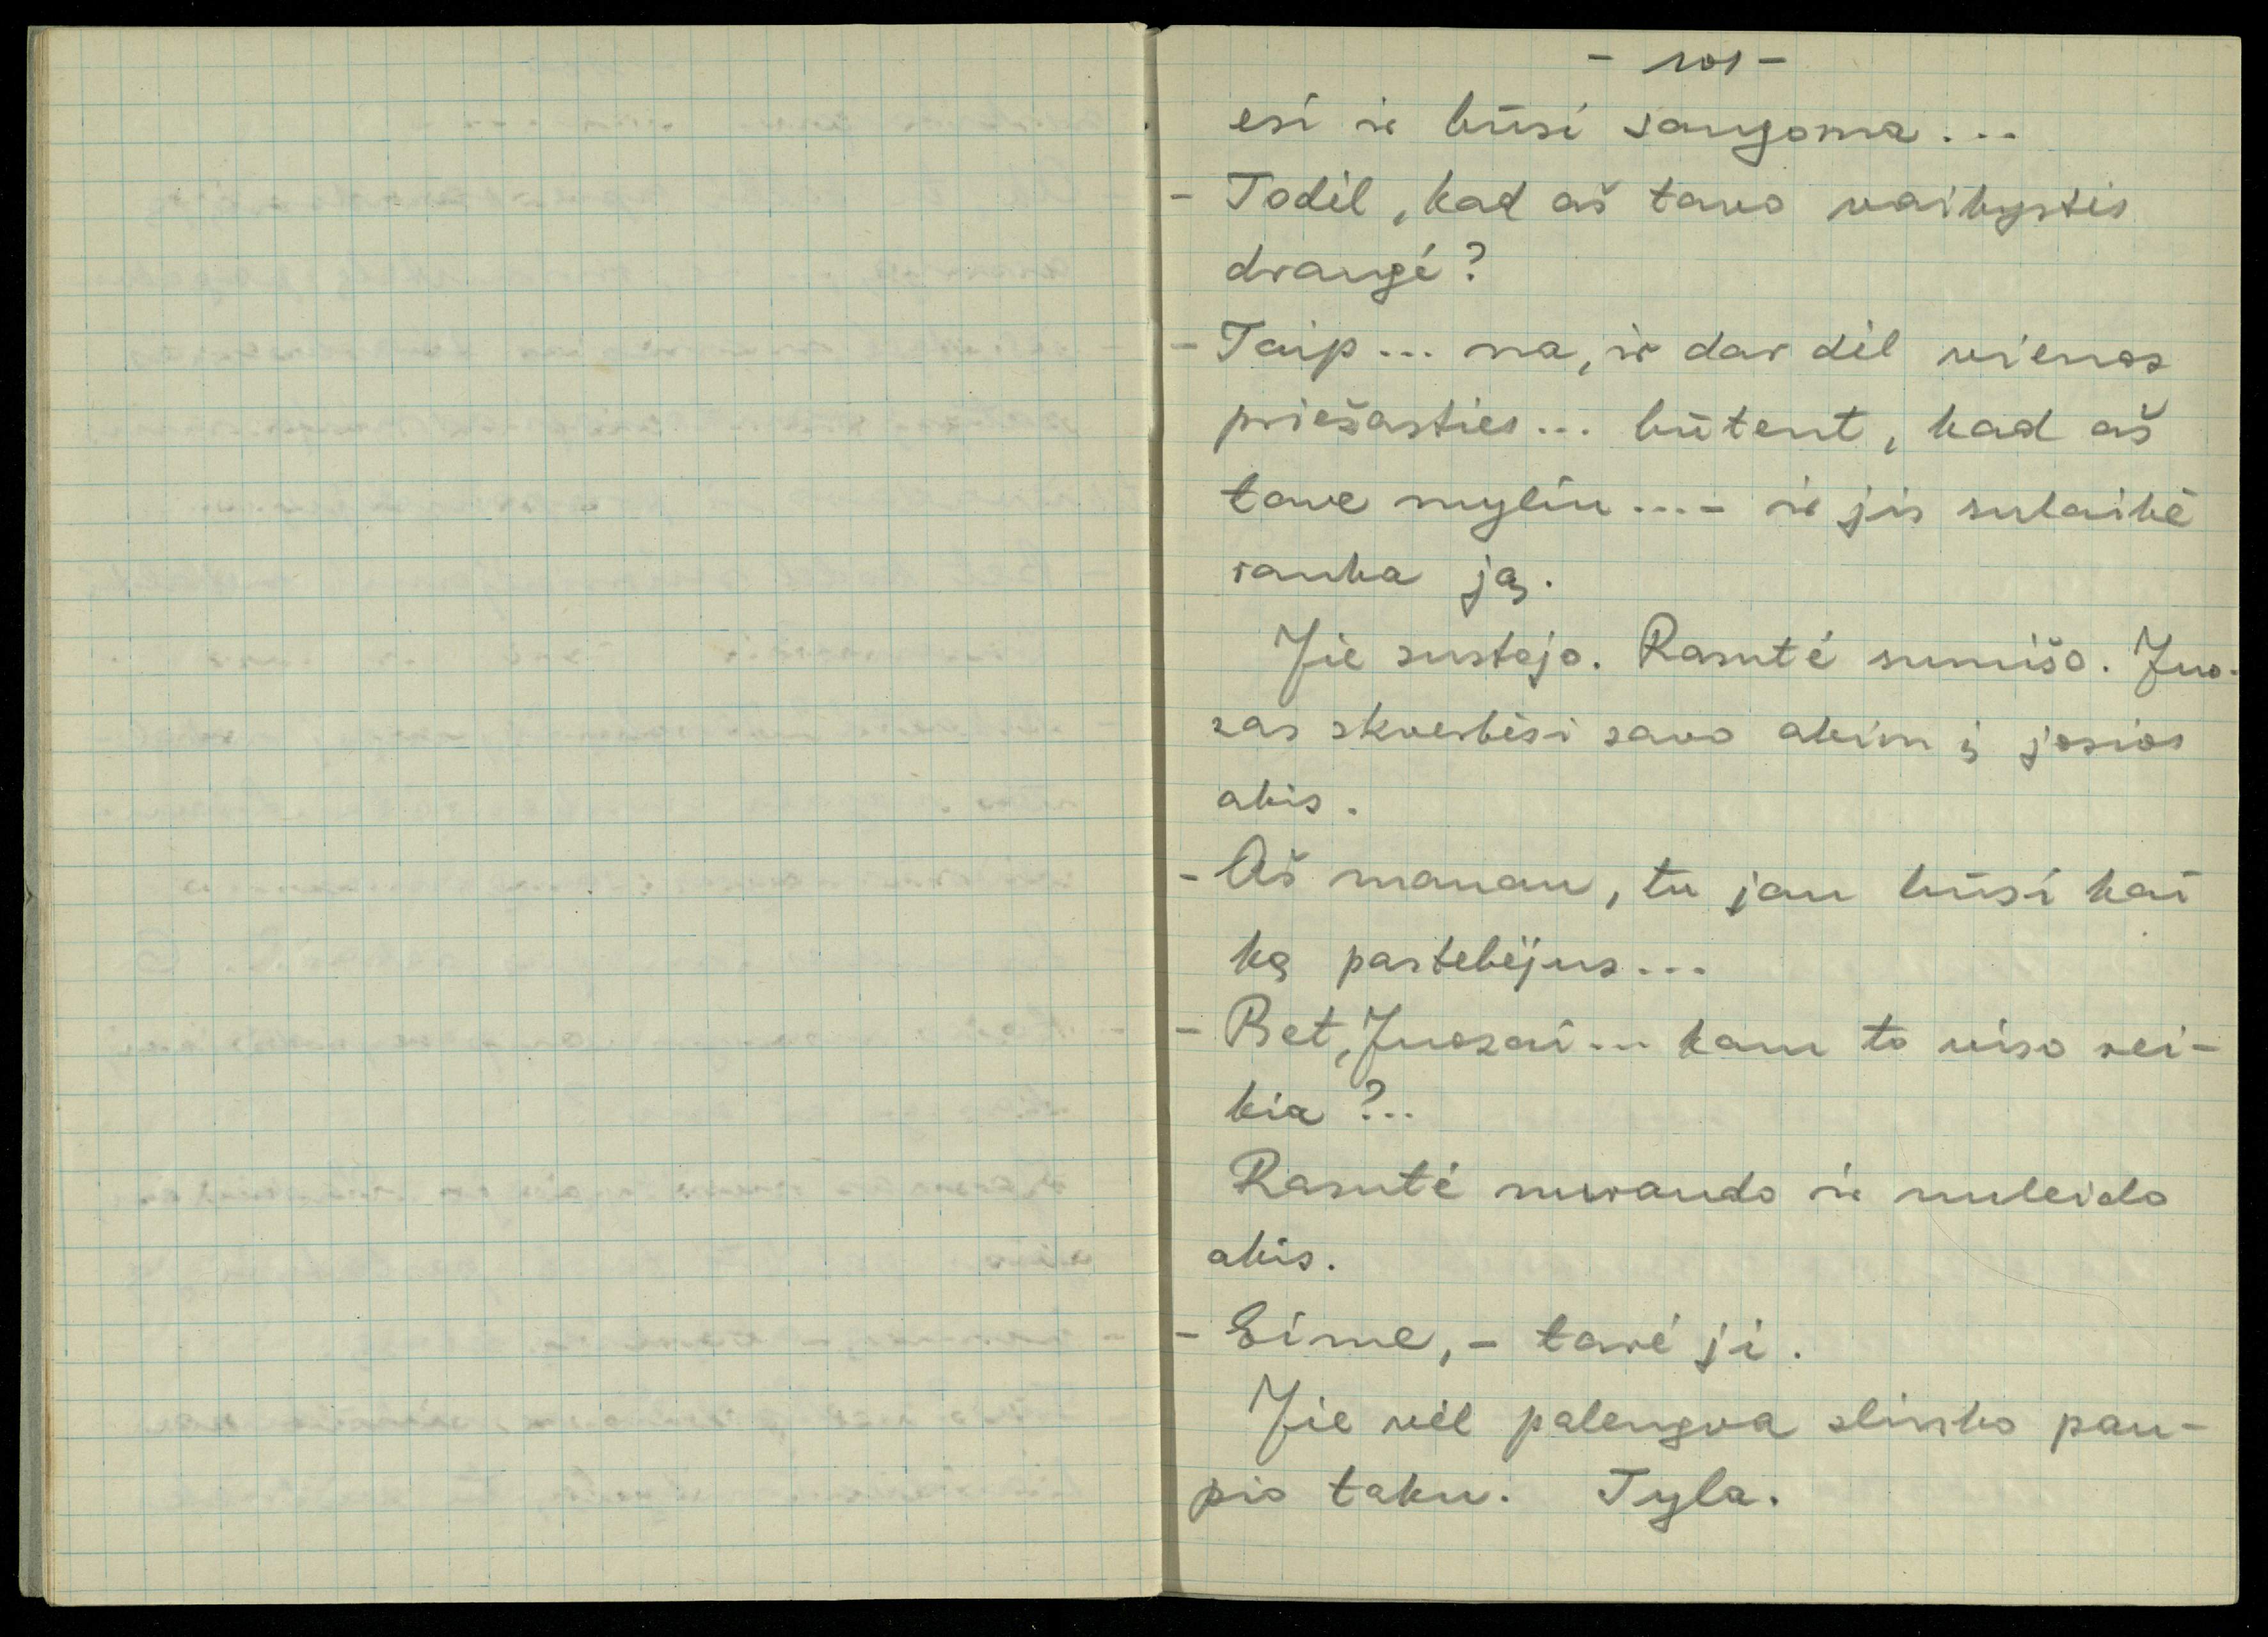 - 101 -
esi ir būsi saugoma...
- Todėl, kad aš tavo vaikystės
draugė?
- Taip... na, ir dar dėl vienos
priežasties... būtent, kad aš
tave myliu...- ir jis sulaikė
ranka ją.
Jie sustojo. Rasutė sumišo. Juo-
zas skverbėsi savo akim į josios
akis.
- Aš manau, tu jau būsi kai
ką pastebėjus...
- Bet, Juozai... kam to viso rei-
kia?..
Rasutė nuraudo ir nuleido
akis.
- Eime, - tarė ji.
Jie vėl palengva slinko pau-
pio taku. Tyla.